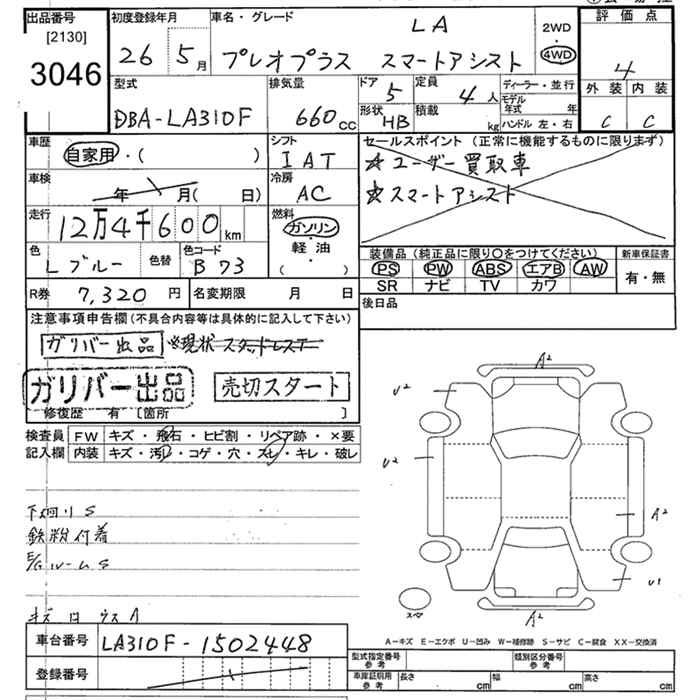 出品番号
[2130]
3046
初度登録年月
26 5月
車名・グレード
LA
プレオプラス スマートアシスト
2WD
4WD
評価点
4
外装 内装
C C
型式
DBA-LA310F
排気量
660cc
ドア 5
形状 HB
定員 4人
積載 kg
ディーラー・並行
モデル年式 年
ハンドル 左・右
車歴
自家用・( )
シフト
IAT
車検
年 月( 日)
冷房
AC
走行
12万4千600km
燃料
ガソリン
軽・油
( )
色
Lブルー
色替
色コード
B73
R券 7,320円
名変期限 月 日
セールスポイント (正常に機能するものに限ります)
☆ユーザー買取車
☆スマートアシスト
装備品(純正品に限り○をつけてください)
新車保証書
PS PW ABS エアB AW
SR ナビ TV カワ
有・無
後日品
注意事項申告欄(不具合内容等は具体的に記入して下さい)
ガリバー出品
ガリバー出品
売切スタート
修復歴 有 [箇所 ]
検査員記入欄
FW キズ・飛石・ヒビ割・リペア跡・×要
内装 キズ・汚レ・コゲ・穴・スレ・キレ・破レ
下廻りS
鉄粉付着
E/GルームS
A2
U2
U2
A2
U1
A2
スペ
車台番号
LA310F-1502448
登録番号
A-キズ E-エクボ U-凹み W-補修跡 S-サビ C-腐食 XX-交換済
型式指定番号 参考
類別区分番号 参考
車庫証明用 参考
長さ cm
幅 cm
高さ cm